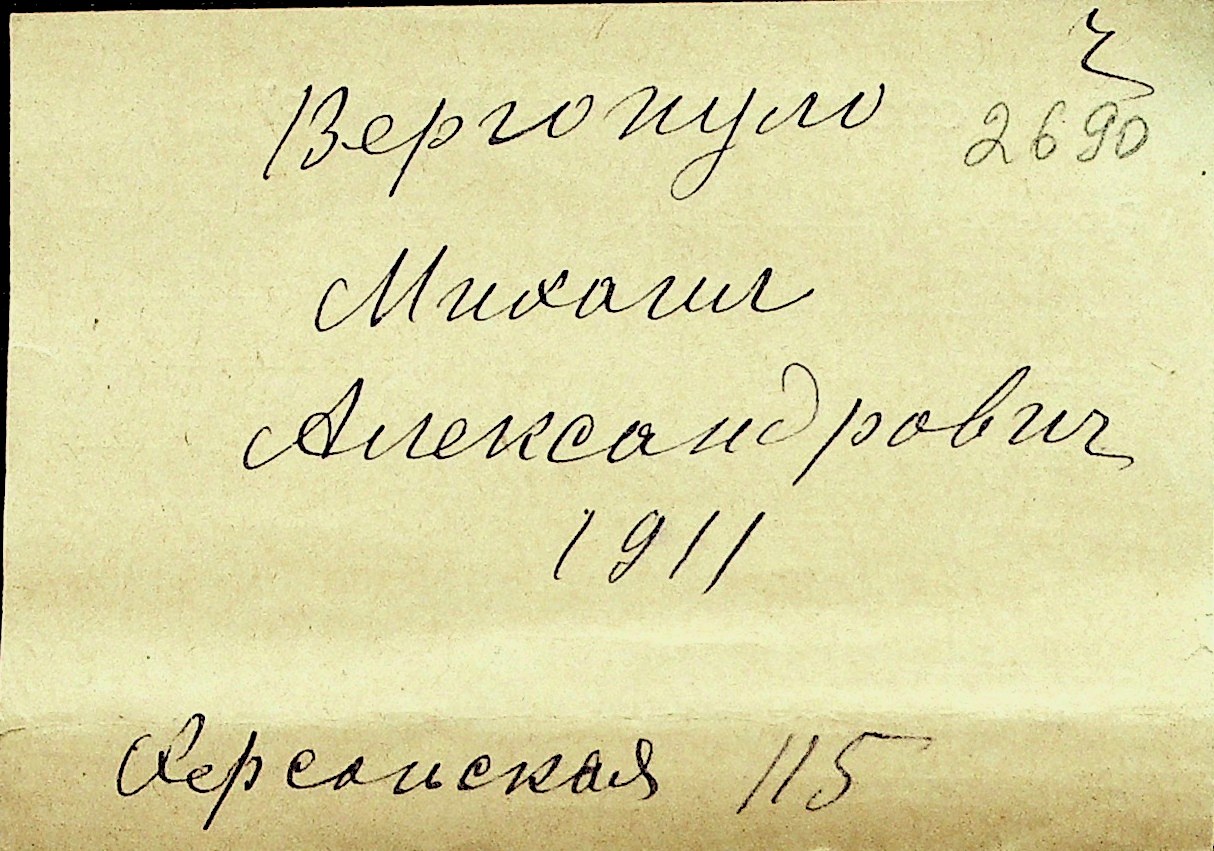 Вергопуло 2690
Михаил
Александрович
1911
Херсонская 115